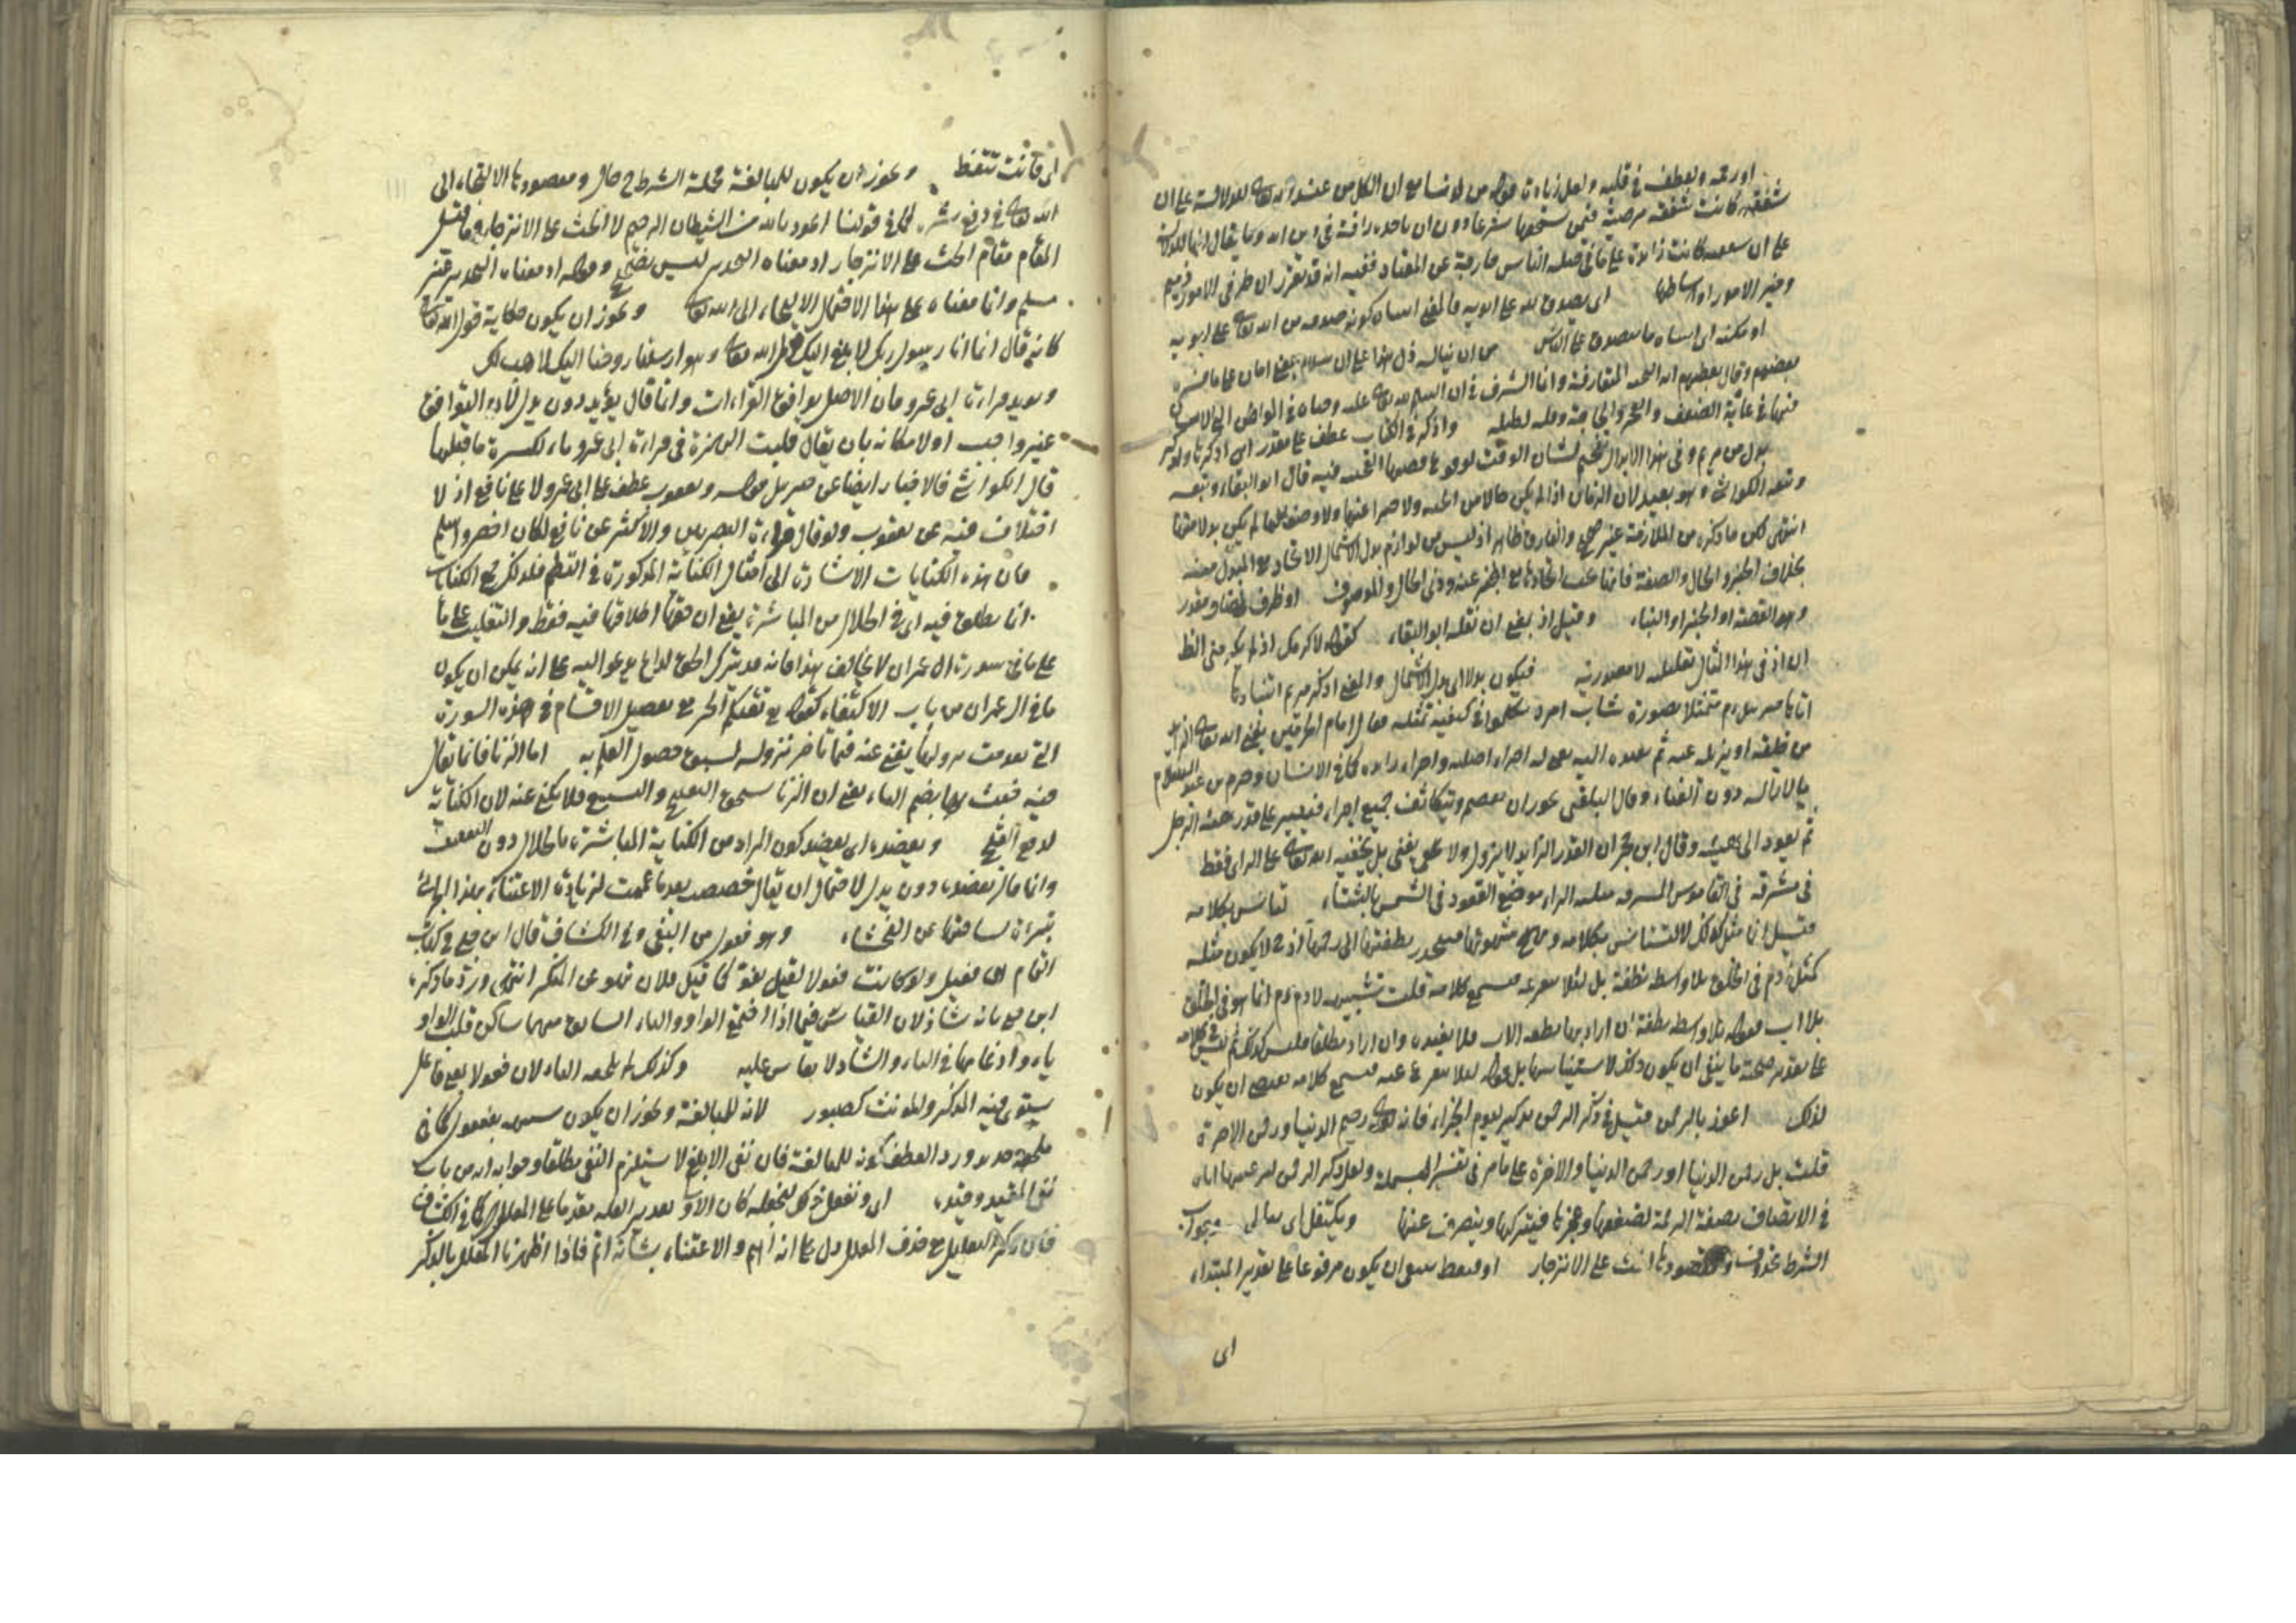 او رحمة وتعطف في قلبه ولعل زيادة قوله من لدنا مع ان الكل من عند الله تعالى للدلالة على ان
شفقته كانت شفقة مرضية فيمن يستحقها شرعا دون ان ياخذه رافة في دين الله وما يقال انها للدلالة
على ان كانت زائدة على ما في قبله الناس خارجة عن المعتاد ففيه انه قد تقرر ان طرفي الامور ذميم
وخير الامور اوساطها اى تصدق الله على ابويه فالمعنى اتيناه كونه صدقة من الله تعالى على ابويه
او مكنه اى اتيناه ما يتصدق على الناس من ان يناله ذل هذا على ان سلام بمعنى امان على ما فسره
بعضهم وقال بعضهم انه التحية المتعارفة وانما الشرف في ان الله تعالى عليه وحياه في المواطن التي الانسان
فيها في غاية الضعف والحاجة وقلة واذكر في الكتاب عطف على مقدر اى اذكر
بدل من مريم وفي هذا الابدال تفخيم لشان الوقت لوقوع قصتها العجيبة فيه قال ابو البقاء وتبعه
وتبعه الكواشى وهو بعيد لان الزمان اذا لم يكن حالا من الجثة ولا خبرا عنها ولا وصفا لها لم يكن بدلا منها
انتهى لكن ما ذكره من الملازمة غير صحيح والفارق ظاهر اذ ليس من لوازم بدل الاشتمال الاتحاد مع المبدل منه
بخلاف الخبر والحال والصفة فانها يجب اتحادها مع المخبر عنه وذى الحال والموصوف او ظرف لمضاف مقدر
وهو القصة او الخبر او النباء وقيل اذ بمعنى ان نقله ابو البقاء كقوله لاكرمتك اذ لم تكرمنى الظ
ان اذ في هذا المثال تعليلية لا مصدرية فيكون بدلا اى بدل الاشتمال والمعنى اذكر مريم انتباذها
اتاها جبريل م متمثلا بصورة شاب امرد تكلموا في كيفية تمثله فقال امام الحرمين يفنى الله تعالى الزائد
من خلقه او يزيله عنه ثم يعيده اليه يعنى له اجزاء اصلية واجزاء زائدة كما في الانسان وجزم ابن عبد السلام
بالازالة دون الفناء وقال البلقينى يجوز ان ينضم ويتكاثف جميع اجزاءه فيصير على قدر هيئة الرجل
ثم يعود الى هيئته وقال ابن حجر ان القدر الزائد لا يزول ولا يفنى بل يخفيه الله تعالى على الرائى فقط
في مشرقة في القاموس المشرقة مثلثة الراء موضع القعود في الشمس بالشتاء تستانس بكلامه
قيل انما مثل كذلك لتستانس بكلامه ويهيج شهوتها فيتحدر نطفتها الى رحمها اذ ح لا يكون مثله
كمثل ادم في الخلق بلا واسطة نطفة بل لئلا تنفر عنه فتسمع كلامه قلت تشبيهه لادم م انما هو في الخلق
بلا اب فقوله بلا واسطة نطفة ان اراد بها نطفة الاب فلا يفيده وان اراد مطلقا فليس كذلك ثم
على تقدير صحة ما ينبغى ان يكون ذلك لاستيناسها بل قوله لئلا تنفر عنه فتسمع كلامه يقتضى ان يكون
لذلك اعوذ بالرحمن قيل في ذكر الرحمن تذكير ليوم الجزاء فانه تعالى رحيم الدنيا ورحمن الاخرة
قلت بل رحمن الدنيا او رحمن الدنيا والاخرة على ما مر في تفسير البسملة ولعل ذكر الرحمن اياه
في الاتصاف بصفة الرحمة لضعفها وعجزها فيتركها وينصرف عنها ويكتفل اى يبالى وجواب
الشرط محذوف ومقصودها الحث على الانزجار او فتتعظ ينبغى ان يكون مرفوعا على تقدير المبتداء
اى
اى فانت تتعظ ويجوز ان يكون للمبالغة فجملة الشرط ح حال ومقصودها الالتجاء الى
الله تعالى في دفع شره كما في قولنا اعوذ بالله من الشيطان الرجيم لا الحث على الانزجار وما قيل
المقام مقام الحث على الانزجار اذ معناه التحذير ليس بصحيح وقوله اذ معناه التحذير غير
مسلم وانما معناه على هذا الاحتمال الالتجاء الى الله تعالى ويجوز ان يكون حكاية قول الله تعالى
كانه قال انما انا رسول ربك لابلغ اليك قول الله تعالى وهو ارسلنا روحنا اليك لاهب لك
ويؤيده قراءة ابى عمرو فان الاصل توافق القراءات وانما قال يؤيد دون يدل لان التوافق
غير واجب او لامكانه بان يقال قلبت الهمزة في قراءة ابى عمرو ياء لكسرة ما قبلها
قال الكواشى فالاخبار ايضا عن جبريل قوله ويعقوب عطف على ابى عمرو لا على نافع اذ لا
اختلاف فيه عن يعقوب ولو قال قراءة البصريين والاكثر عن نافع لكان اخصر واسلم
فان هذه الكنايات الاشارة الى امثال الكناية المذكورة في النظم فلذلك جمع الكنايات
انما يطلق فيه اى في الحلال من المباشرة يعنى ان حقها اطلاقها فيه فقط والتغليب على ما
على ما في سورة ال عمران لا يخالف هذا فانه قد يترك الحق لداع يدعو اليه على انه يمكن ان يكون
ما في ال عمران من باب الاكتفاء كقوله تع تقيكم الحر مع تفصيل الاقسام في هذه السورة
التي تقدمت نزولها يغنى عنه فيما تاخر نزوله لسبق حصول العلم به اما الزنا فانما يقال
فيه خبث بها بضم الباء يعنى ان الزنا يستحق التقبيح والتشنيع فلا يكنى عنه لان الكناية
لدفع القبح ويعضده اى يعضد كون المراد من الكناية المباشرة بالحلال دون
وانما قال يعضده دون يدل لاحتمال ان يقال خصصت بعد ما عممت لزيادة الاعتناء
تبرئة ساحتها عن الفحشاء وهو فعول من البغى وفي الكشاف قال ابن جنى في كتاب
التمام هى فعيل ولو كانت فعولا لقيل بغو كما قيل فلان نهو عن المنكر انتهى ورد ما ذكره
ابن جنى بانه شاذ لان القياس فيما اذا اجتمع الواو والياء السابق منهما ساكن قلب الواو
ياء وادغامها في الياء والشاذ لا يقاس عليه وكذلك لم يلحقه التاء لان فعولا بمعنى فاعل
يستوى فيه المذكر والمونث كصبور لانه للمبالغة ويجوز ان يكون بمعنى مفعول كما في
ملحفة جديد ورد العطف كونه للمبالغة فان نفى الابلغ لا يستلزم النفى مطلقا وجوابه انه من باب
نفى المقيد وقيده اى ونفعل ذلك لنجعله كان الاولى تقدير العلة مقدما على المعلل كما في الكشاف
فان ذكر التعليل مع حذف المعلل دل على انه اهم والاعتناء بشانه اتم فاذا اظهرنا المعلل بالذكر